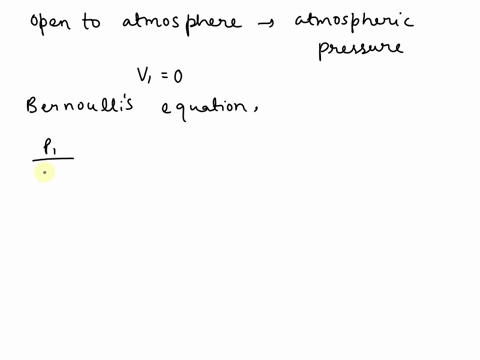 open to atmosphere → atmospheric
pressure
V₁ = 0
Bernoulli's equation,
P₁